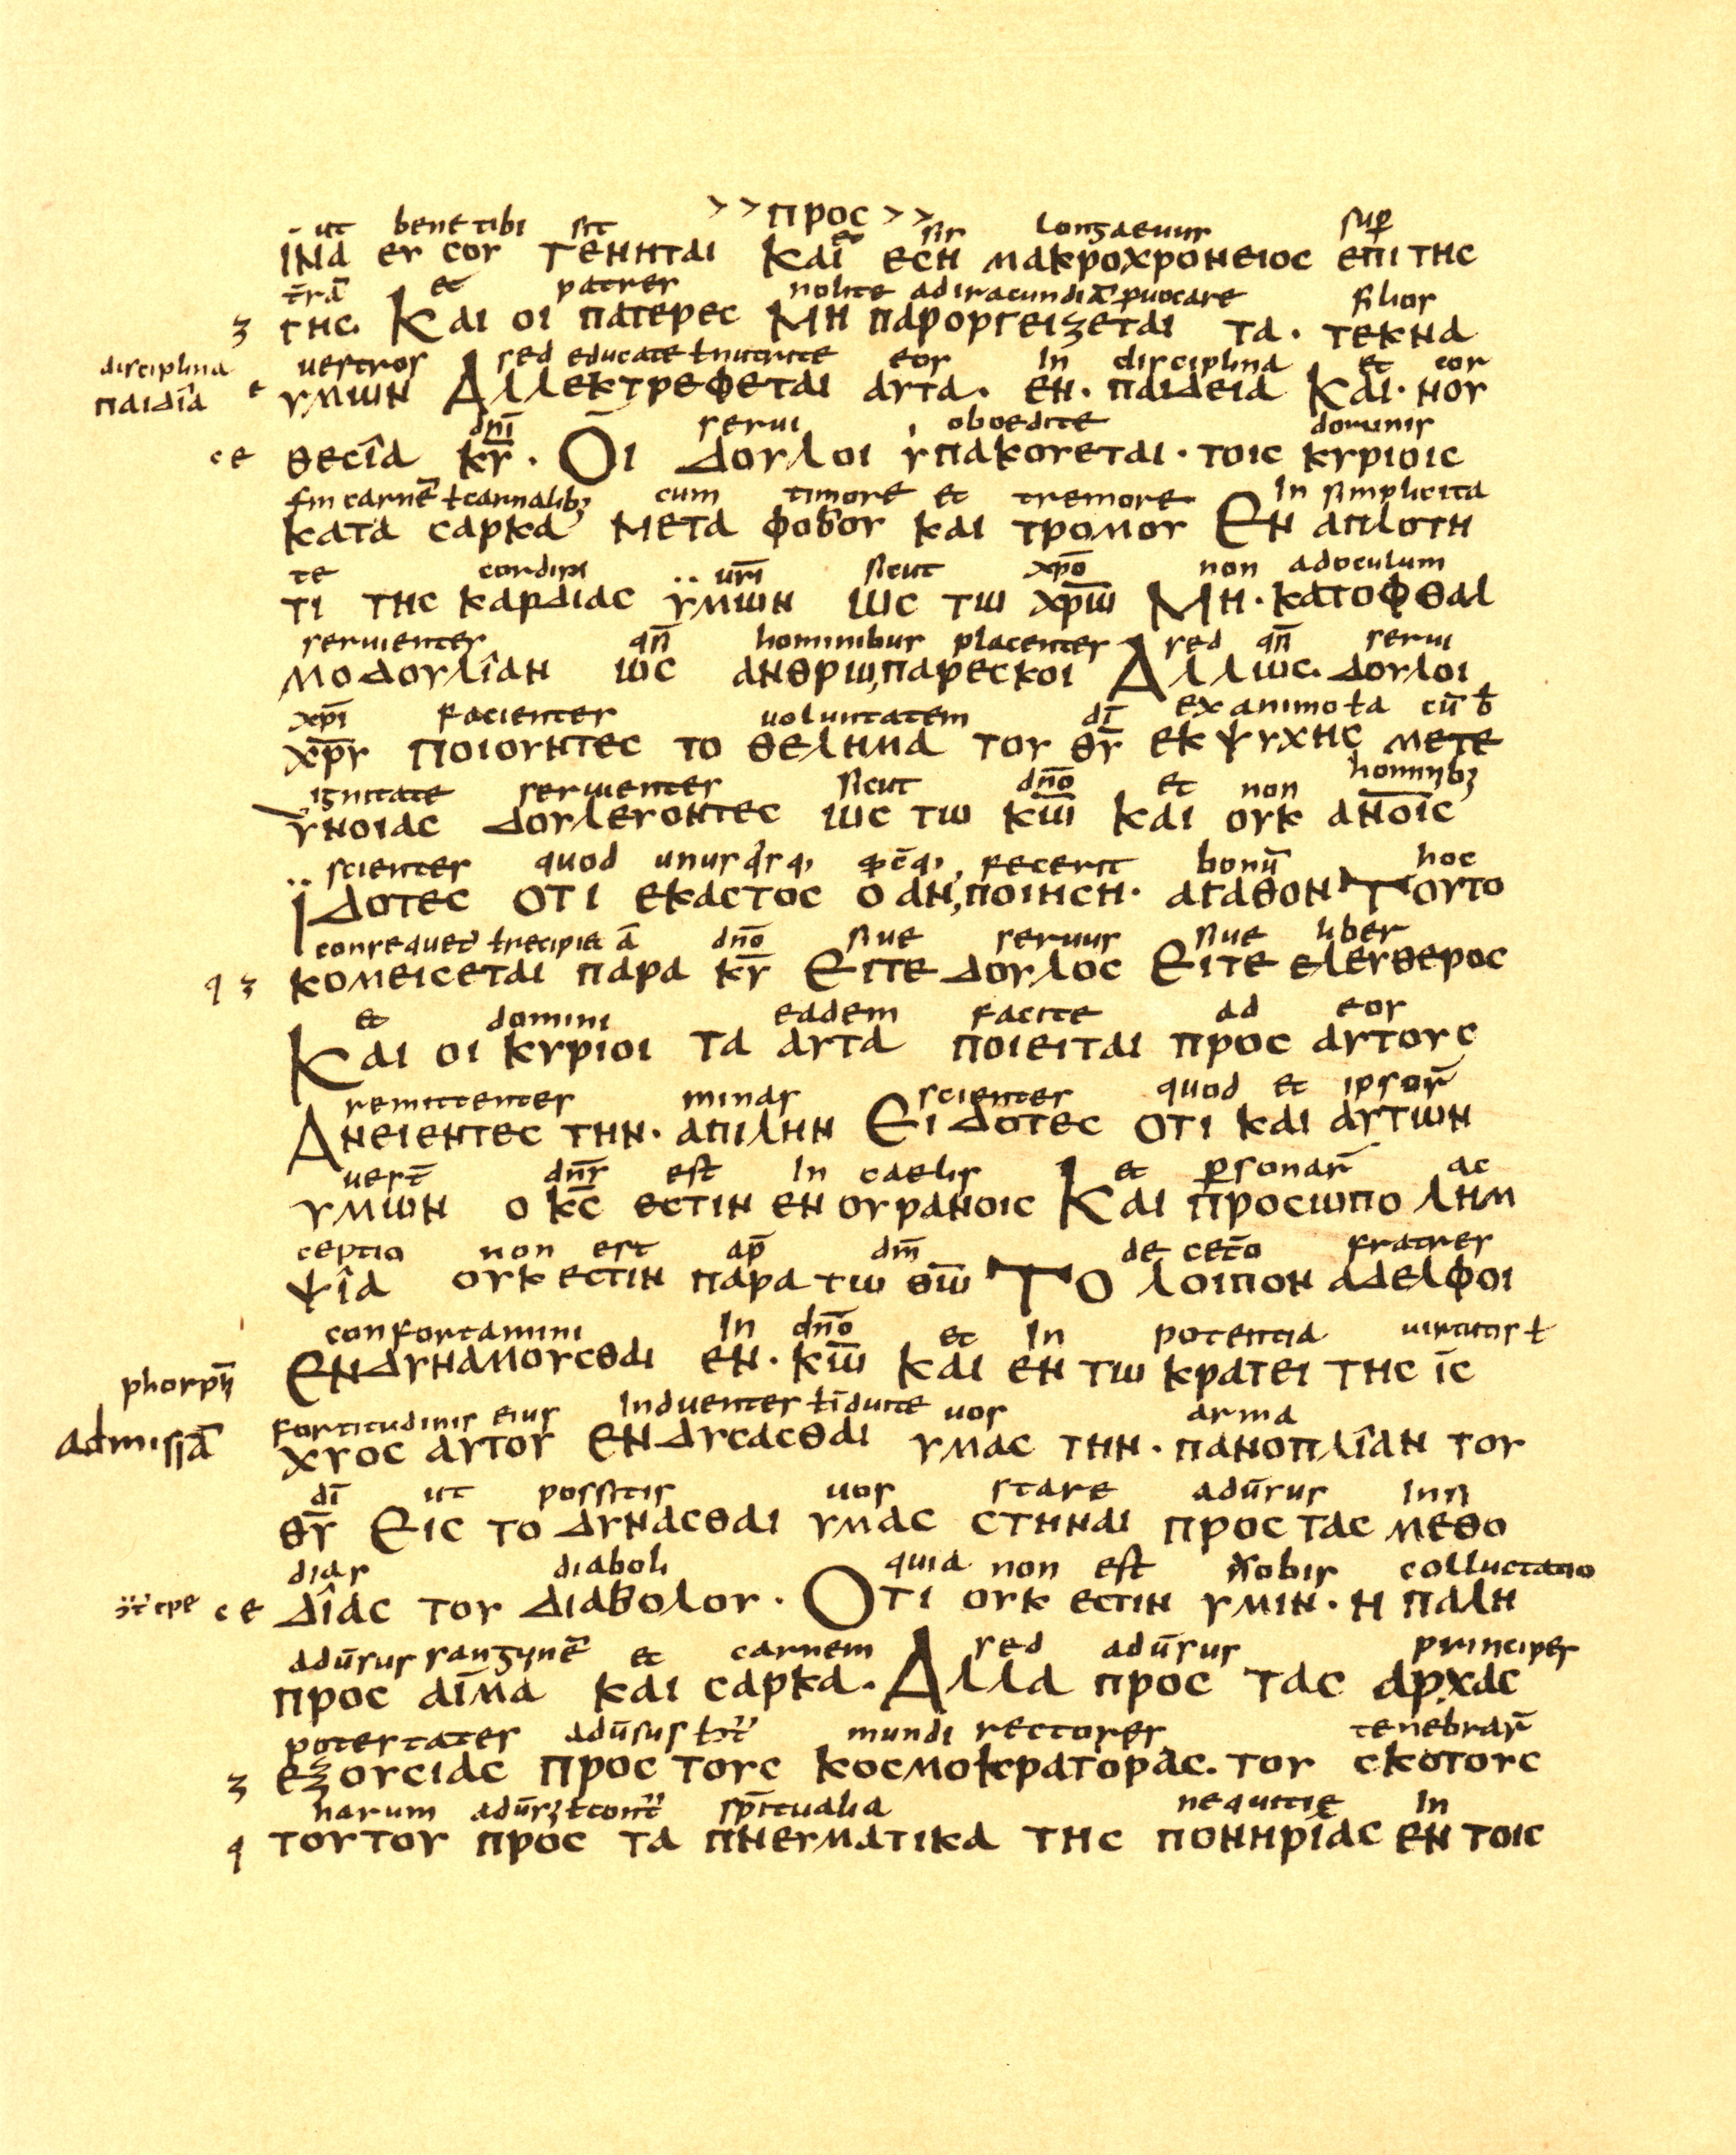 >> προς >>
ut bene tibi sit et sis longaevus sup̄
ινα ευ σου γενηται και εση μακροχρονειος επι της
t̄rā et patres nolite ad iracundiā ꝓuocare filios
γης. Και οι πατερες Μη παροργειζεται τα · τεκνα
disciplina uestros sed educate ł nutrite eos In disciplina et cor
παιδιᾶ υμων Αλλεκτρεφεται αυτα · εν · παιδεια Και · νου
dn̄i serui oboedite dominis
θεσιᾶ κ̄ῡ · Οι δουλοι υπακουεται · τοις κυριοις
scđm carnē ł carnalibꝫ cum timore et tremore In simplicita
κατα σαρκα Μετα φοβου και τρομου Εν απλοτη
te cordis ur̄i sicut xp̄o non ad oculum
τι της καρδιας ϋμων ως τω χ̄ρ̄ω̄ Μη · κατοφθαλ
seruientes qn̄ hominibus placentes sed qn̄ serui
μοδουλίαν ως ανθρω,παρεσκοι Αλλως · δουλοι
xp̄i facientes uoluntatem dī ex animo ł a cū b̄
χ̄ρ̄ῡ Ποιουντες το θελημα του θ̄ῡ εκ ψυχης μετε
ignitate seruientes sicut dn̄o et non hominibꝫ
υνοιας δουλευοντες ως τω κ̄ω̄ και ουκ ανοῑς
scientes quod unusq̄sq, fecerit bonū hoc
ϊδοτες οτι εκαστος ο αν,ποιηση · αγαθον Τουτο
consequet̄ ł recipiet ā dn̄o siue seruus siue liber
κομεισεται παρα κ̄ῡ Ειτε δουλος Ειτε ελευθερος
et domini eadem facite ad eos
Και οι κυριοι τα αυτα ποιειται προς αυτους
remittentes minas scientes quod et ipsor̄
Ανειεντες την · απιλην Ειδοτες οτι και αυτων
uest̄ dn̄s est In caelis et ꝑsonar̄ ac
υμων ο κ̄ς̄ εστιν εν ουρανοις Και προσωπο λημ
ceptio non est ap̄ dm̄ de cet̄o fratres
ψία ουκ εστιν παρα τω θ̄ω̄ Το λοιπον αδελφοι
confortamini In dn̄o et In potentia uirtutis ł
Ενδυναμουσθαι εν · κ̄ω̄ και εν τω κρατει της ῑς
fortitudinis eius Induentes ł īduite uos arma
admissā χυος αυτου Ενδυσασθαι υμας την · πανοπλίαν του
dī ut possitis uos stare adūsus Insi
θ̄ῡ Εις το δυνασθαι υμας στηναι προς τας μεθο
dias diaboli quia non est nobis colluctatio
δίας του διαβολου · Οτι ουκ εστιν υμιν · η παλη
adūsus sanguinē et carnem sed adūsus principes
προς αῑμα και σαρκα · Αλλα προς τας αρχας
potestates adūsus mundi rectores tenebrar̄
εξουσιας προς τους κοσμοκρατορας · του σκοτους
harum sp̄itualia nequitie In
τουτου προς τα πνευματικα της πονηρίας εν τοις